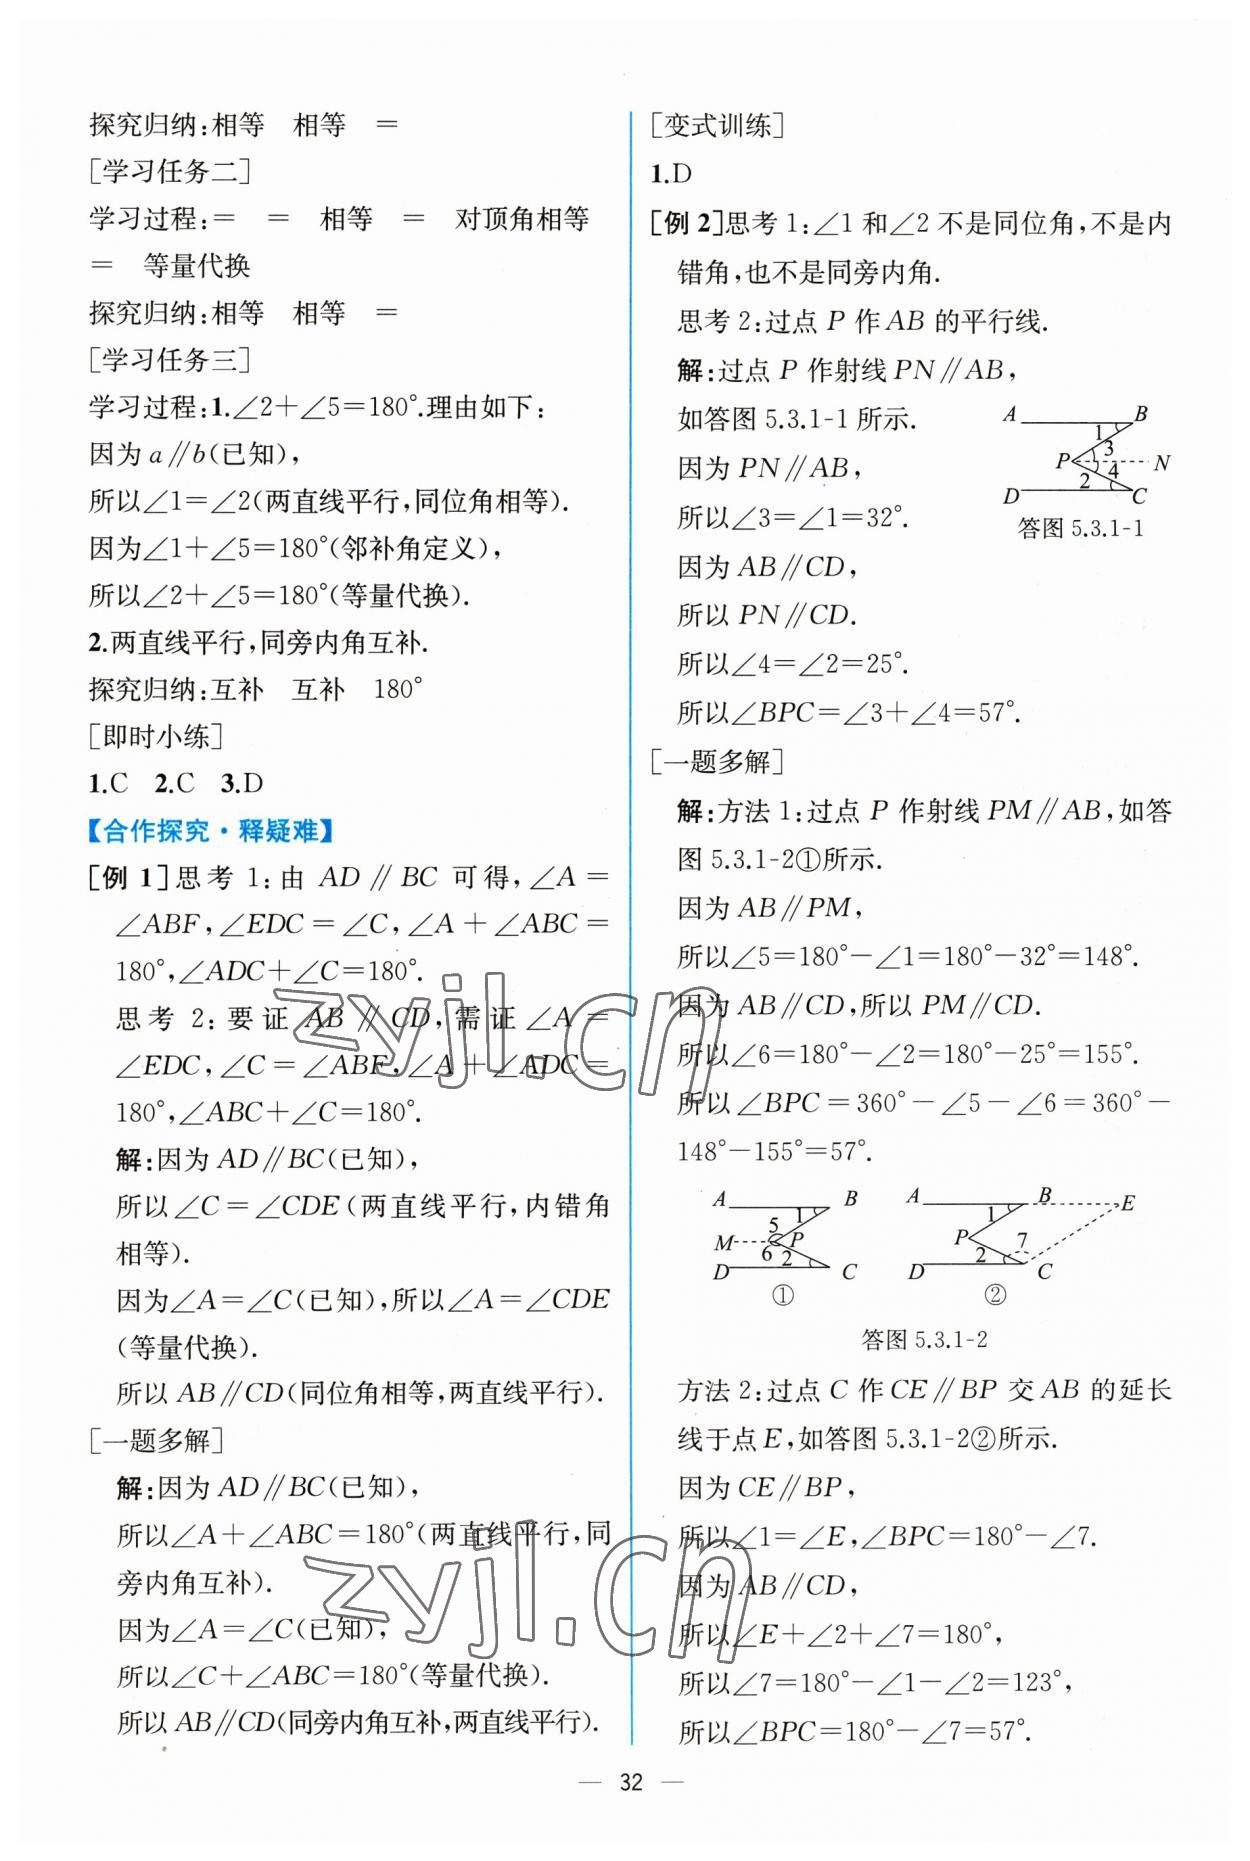 探究归纳:相等　相等　=
[学习任务二]
学习过程:=　=　相等　=　对顶角相等
=　等量代换
探究归纳:相等　相等　=
[学习任务三]
学习过程:1.∠2+∠5=180°.理由如下:
因为a∥b(已知),
所以∠1=∠2(两直线平行,同位角相等).
因为∠1+∠5=180°(邻补角定义),
所以∠2+∠5=180°(等量代换).
2.两直线平行,同旁内角互补.
探究归纳:互补　互补　180°
[即时小练]
1.C　2.C　3.D
【合作探究·释疑难】
[例 1]思考 1:由 AD∥BC 可得,∠A=
∠ABF,∠EDC=∠C,∠A+∠ABC=
180°,∠ADC+∠C=180°.
思考 2:要证 AB∥CD,需证∠A=
∠EDC,∠C=∠ABF,∠A+∠ADC=
180°,∠ABC+∠C=180°.
解:因为AD∥BC(已知),
所以∠C=∠CDE(两直线平行,内错角
相等).
因为∠A=∠C(已知),所以∠A=∠CDE
(等量代换).
所以AB∥CD(同位角相等,两直线平行).
[一题多解]
解:因为AD∥BC(已知),
所以∠A+∠ABC=180°(两直线平行,同
旁内角互补).
因为∠A=∠C(已知),
所以∠C+∠ABC=180°(等量代换).
所以AB∥CD(同旁内角互补,两直线平行).
[变式训练]
1.D
[例 2]思考 1:∠1和∠2不是同位角,不是内
错角,也不是同旁内角.
思考 2:过点 P 作AB 的平行线.
解:过点 P 作射线PN∥AB,
如答图5.3.1-1所示.
因为PN∥AB,
所以∠3=∠1=32°.
因为AB∥CD,
所以PN∥CD.
所以∠4=∠2=25°.
所以∠BPC=∠3+∠4=57°.
A B
1 3
P N
2 4
D C
答图5.3.1-1
[一题多解]
解:方法 1:过点 P 作射线 PM∥AB,如答
图5.3.1-2①所示.
因为AB∥PM,
所以∠5=180°-∠1=180°-32°=148°.
因为AB∥CD,所以PM∥CD.
所以∠6=180°-∠2=180°-25°=155°.
所以∠BPC=360°-∠5-∠6=360°-
148°-155°=57°.
A B
5 1
M P
6 2
D C
①
A B E
1
P 7
2
D C
②
答图5.3.1-2
方法 2:过点 C 作 CE∥BP 交 AB 的延长
线于点E,如答图5.3.1-2②所示.
因为CE∥BP,
所以∠1=∠E,∠BPC=180°-∠7.
因为AB∥CD,
所以∠E+∠2+∠7=180°,
所以∠7=180°-∠1-∠2=123°,
所以∠BPC=180°-∠7=57°.
— 32 —
zyjl.cn
zyjl.cn